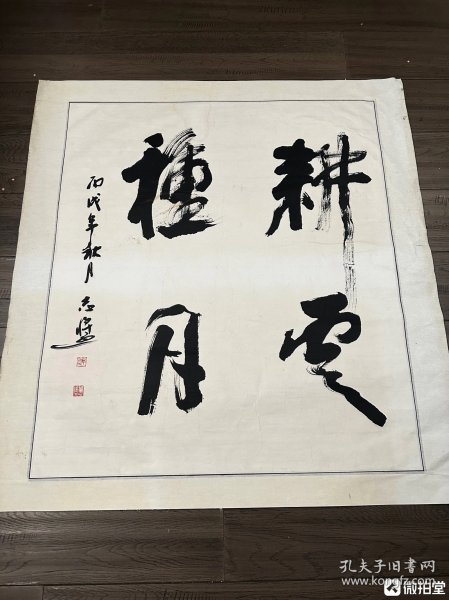 耕雲
種月
丙戌年秋月
孔夫子旧书网
www.kongfz.com
微拍堂